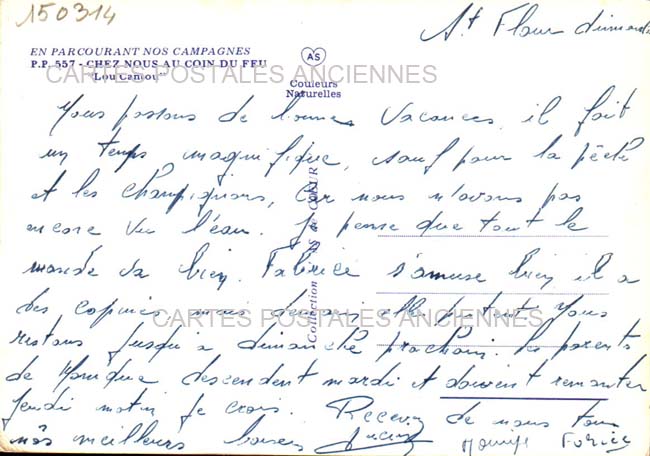 150314
St Flour dimanche
EN PARCOURANT NOS CAMPAGNES
P.P. 557 - CHEZ NOUS AU COIN DU FEU
"Lou Cantou"
AS
Couleurs
Naturelles
CARTES POSTALES ANCIENNES
Nous passons de bonnes vacances, il fait
un temps magnifique, sauf pour la pêche
et les champignons, car nous n'avons pas
encore vu l'eau. Je pense que tout le
monde va bien. Fabrice s'amuse bien il a
des copines mais demain elle partent. Nous
restons jusqu'a dimanche prochain. les parents
de Monique descendent mardi et doivent remonter
jeudi matin je crois. Recevez de nous tous
nos meilleurs baisers
Fabrice
Collection AS de CŒUR
CARTES POSTALES ANCIENNES